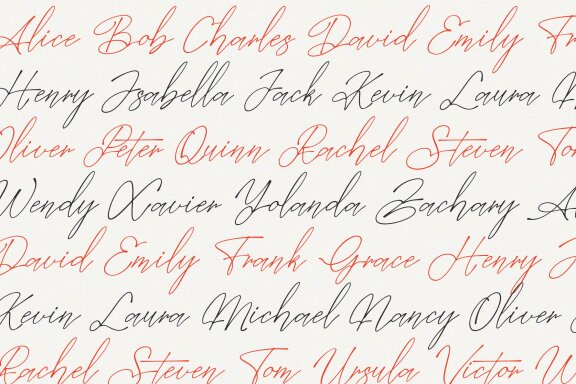 Alice Bob Charles David Emily Fr
Henry Isabella Jack Kevin Laura
Oliver Peter Quinn Rachel Steven Tom
Wendy Xavier Yolanda Zachary
David Emily Frank Grace Henry
Kevin Laura Michael Nancy Oliver
Rachel Steven Tom Ursula Victor W